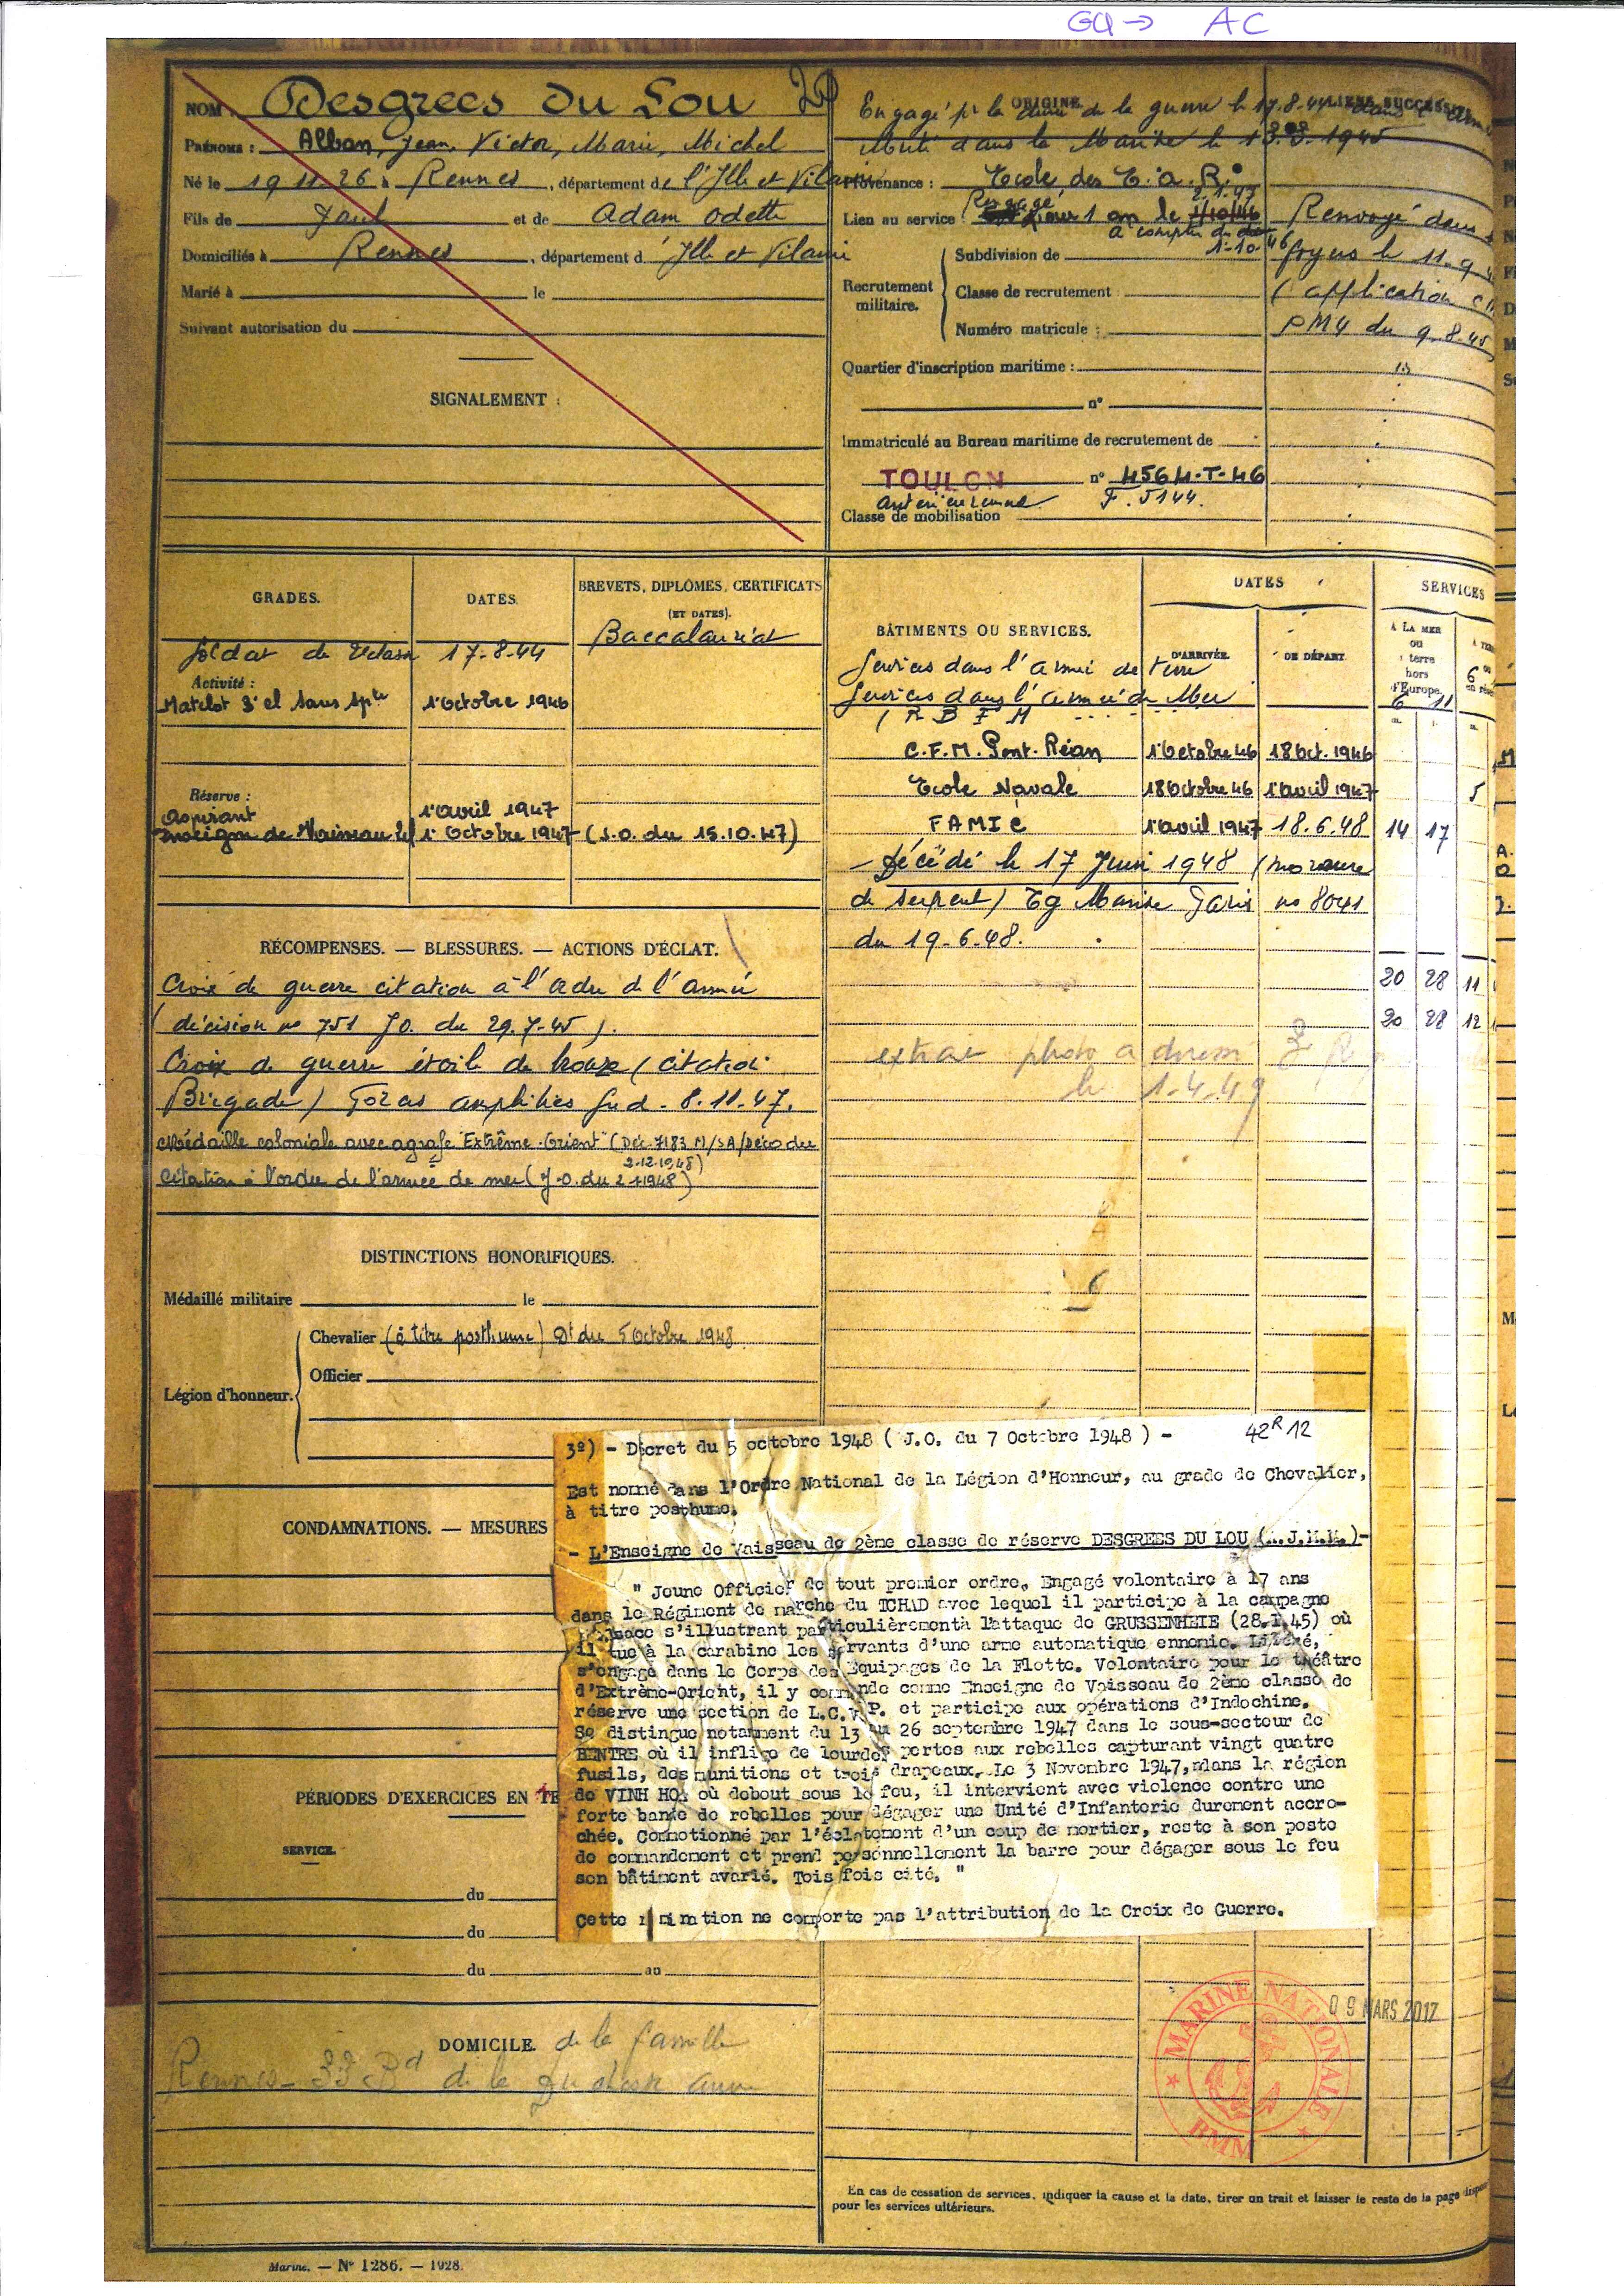 GU → AC
NOM : Desgrees du Lou
Prénoms : Alban, Jean, Victor, Marie, Michel
Né le 19.11.26 à Rennes, département de l'Ille et Vilaine
Fils de Paul et de Adam Odette
Domiciliés à Rennes, département d' Ille et Vilaine
Marié à le
Suivant autorisation du
SIGNALEMENT :
ORIGINE
LIENS SUCCESSIFS
Engagé pr la durée de la guerre le 17.8.44 dans
dans la Marine le 1945
Provenance : Ecole des E.O.R.
Lien au service : Rengagé pour 1 an le 1/10/46
à compter du
1-10-46
Renvoyé dans
foyers le 11.9
(application
PM4 du 9.8.45
Recrutement militaire.
Subdivision de
Classe de recrutement :
Numéro matricule :
Quartier d'inscription maritime :
n°
Immatriculé au Bureau maritime de recrutement de
TOULON n° 4564-T-46
antérieurement F. 5144.
Classe de mobilisation
GRADES. DATES. BREVETS, DIPLÔMES, CERTIFICATS
(ET DATES).
Soldat de 2eclasse 17-8-44 Baccalauréat
Activité :
Matelot 3e cl sans spte 1er Octobre 1946
Réserve :
Aspirant 1er avril 1947
Enseigne de Vaisseau 2cl 1er Octobre 1947 (J.O. du 15.10.47)
BÂTIMENTS OU SERVICES.
DATES
D'ARRIVÉE. DE DÉPART.
SERVICES
À LA MER
ou
à terre
hors
d'Europe.
Services dans l'armée de terre
Services dans l'armée de Mer
6 11
(R B F M
C.F.M. Pont-Réan 1er Octobre 46 18 Oct. 1946
Ecole Navale 18 Octobre 46 1er avril 1947 5
FAMIC 1er avril 1947 18.6.48 14 17
- Décédé le 17 Juin 1948 (morsure
de serpent) Tg Marine Paris no 8041
du 19-6-48.
20 28 11
20 28 12
extrait photo adressé
le 1-4-49
RÉCOMPENSES. — BLESSURES. — ACTIONS D'ÉCLAT.
Croix de guerre citation à l'ordre de l'armée
(décision no 751 JO. du 29.7.45).
Croix de guerre étoile de bronze (citation
Brigade) Forces amphibies Sud - 8.11.47.
Médaille coloniale avec agrafe "Extrême-Orient" (Déc. 7183 M/SA/Déco du
2.12.1948)
Citation à l'ordre de l'armée de mer (J.O. du 2 1 1948)
DISTINCTIONS HONORIFIQUES.
Médaillé militaire le
Légion d'honneur.
Chevalier (à titre posthume) Dt du 5 Octobre 1948
Officier
3º) - Décret du 5 octobre 1948 ( J.O. du 7 Octobre 1948 ) - 42R 12
Est nommé dans l'Ordre National de la Légion d'Honneur, au grade de Chevalier,
à titre posthume.
- L'Enseigne de Vaisseau de 2ème classe de réserve DESGREES DU LOU (A.J.V.M.)-
" Jeune Officier de tout premier ordre. Engagé volontaire à 17 ans
dans le Régiment de marche du TCHAD avec lequel il participe à la campagne
d'Alsace s'illustrant particulièrementà l'attaque de GRUSSENHEIE (28.1.45) où
il tue à la carabine les servants d'une arme automatique ennemie. Libéré,
s'engage dans le Corps des Equipages de la Flotte. Volontaire pour le théâtre
d'Extrème-Orient, il y commande comme Enseigne de Vaisseau de 2ème classe de
réserve une section de L.C.V.P. et participe aux opérations d'Indochine.
Se distingue notamment du 13 au 26 septembre 1947 dans le sous-secteur de
BENTRE où il inflige de lourdes pertes aux rebelles capturant vingt quatre
fusils, des munitions et trois drapeaux. Le 3 Novembre 1947, dans la région
de VINH HOA où debout sous le feu, il intervient avec violence contre une
forte bande de rebelles pour dégager une Unité d'Infanterie durement accro-
chée. Commotionné par l'éclatement d'un coup de mortier, reste à son poste
de commandement et prend personnellement la barre pour dégager sous le feu
son bâtiment avarié. Tois fois cité. "
Cette nomination ne comporte pas l'attribution de la Croix de Guerre.
CONDAMNATIONS. — MESURES
PÉRIODES D'EXERCICES EN TE
SERVICE.
du
du
du au
DOMICILE de la famille
Rennes - 33 Bd de la Duchesse Anne
MARINE NATIONALE
BMM
09 MARS 2017
En cas de cessation de services, indiquer la cause et la date, tirer un trait et laisser le reste de la page
pour les services ultérieurs.
Marine. — N° 1286. — 1928.